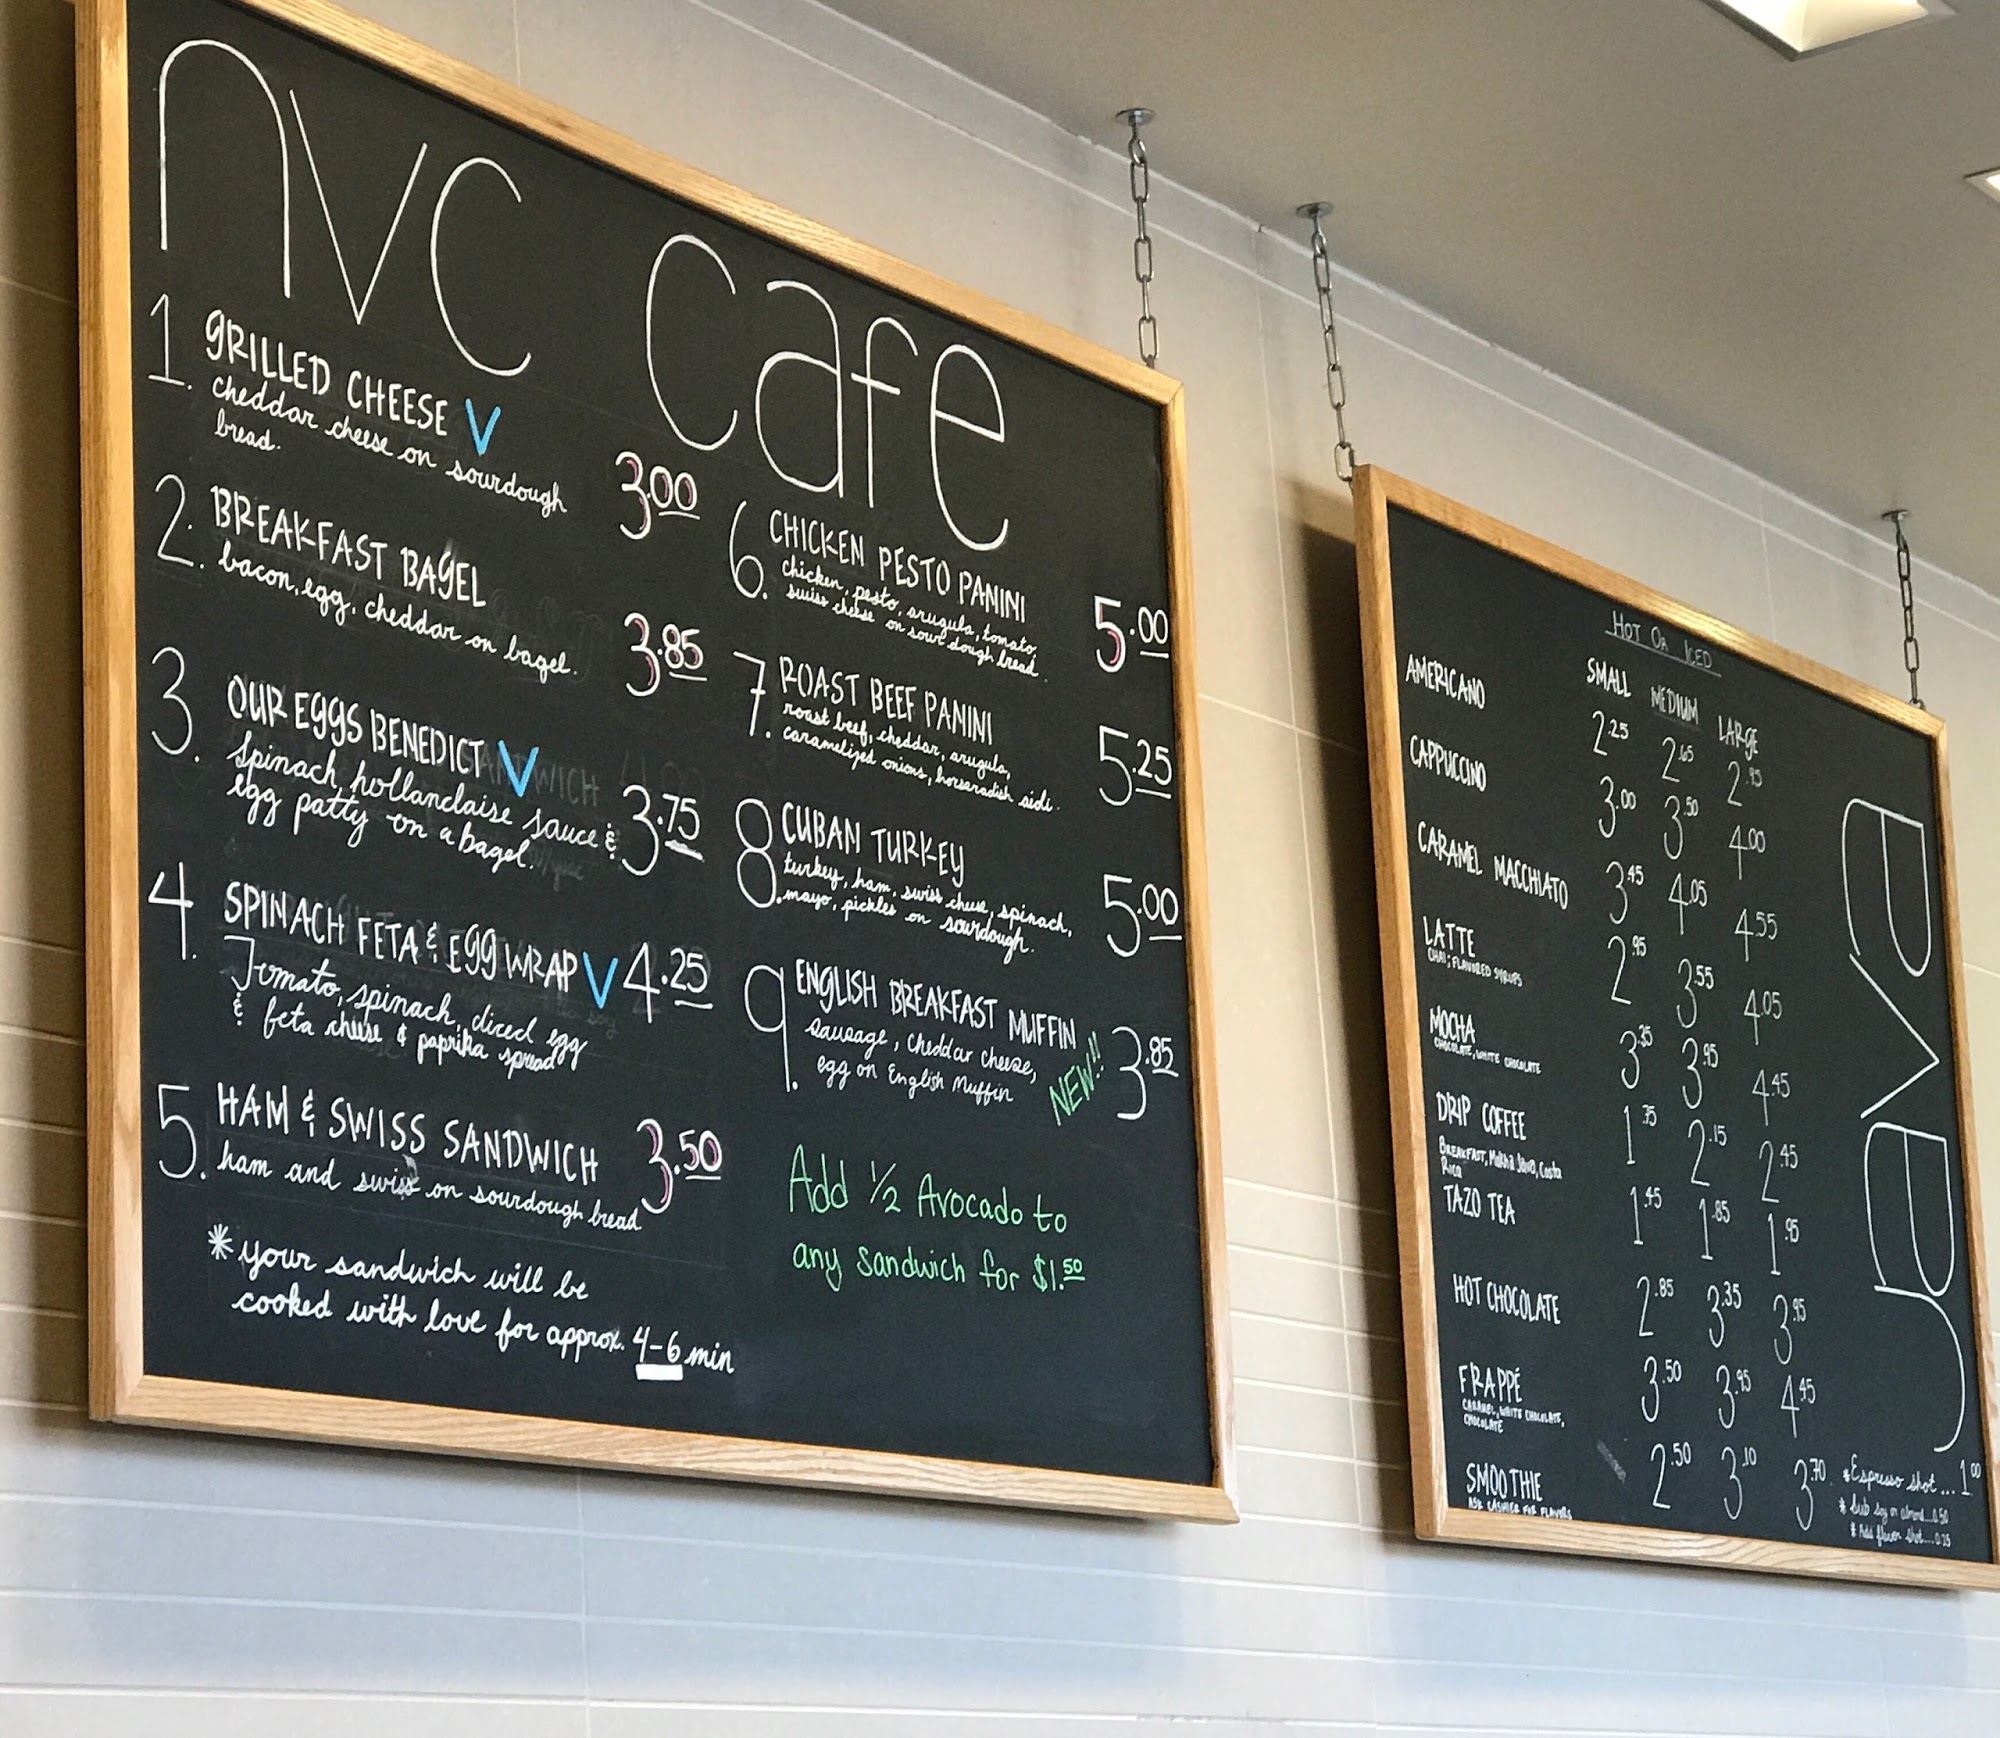 nvc cafe
1. GRILLED CHEESE V
cheddar cheese on sourdough
bread.
3.00
2. BREAKFAST BAGEL
bacon, egg, cheddar on bagel.
3.85
3. OUR EGGS BENEDICT V
Spinach, hollandaise sauce &
egg patty on a bagel.
3.75
4. SPINACH FETA & EGG WRAP V 4.25
Tomato, spinach, diced egg
& feta cheese & paprika spread
5. HAM & SWISS SANDWICH
ham and swiss on sourdough bread
3.50
* your sandwich will be
cooked with love for approx. 4-6 min
6. CHICKEN PESTO PANINI
chicken, pesto, arugula, tomato,
swiss cheese on sourdough bread.
5.00
7. ROAST BEEF PANINI
roast beef, cheddar, arugula,
caramelized onions, horseradish aioli.
5.25
8. CUBAN TURKEY
turkey, ham, swiss cheese, spinach,
mayo, pickles on sourdough.
5.00
9. ENGLISH BREAKFAST MUFFIN
sausage, cheddar cheese,
egg on English Muffin
NEW!! 3.85
Add 1/2 Avocado to
any sandwich for $1.50
HOT OR ICED
SMALL MEDIUM LARGE
AMERICANO 2.25 2.65 2.95
CAPPUCCINO 3.00 3.50 4.00
CARAMEL MACCHIATO 3.45 4.05 4.55
LATTE 2.95 3.55 4.05
CHAI; FLAVORED SYRUPS
MOCHA 3.35 3.95 4.45
CHOCOLATE, WHITE CHOCOLATE
DRIP COFFEE 1.75 2.15 2.45
BREAKFAST, Mokha Java, Costa
Rica
TAZO TEA 1.45 1.85 1.95
HOT CHOCOLATE 2.85 3.35 3.95
FRAPPÉ 3.50 3.95 4.45
CARAMEL, WHITE CHOCOLATE,
CHOCOLATE
SMOOTHIE 2.50 3.10 3.70
ASK CASHIER FOR FLAVORS
* Espresso shot... 1.00
* Sub soy or almond....0.50
* Add flavor shot....0.25